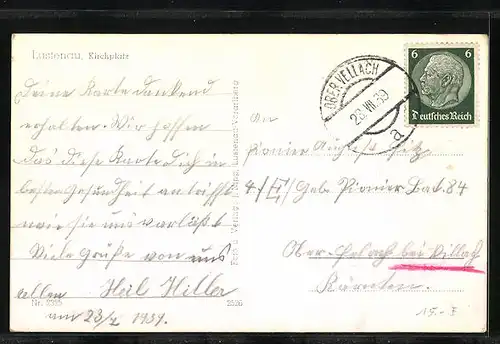 Lustenau, Kirchplatz
Deine Karte dankend
erhalten. Wir hoffen
das diese Karte Dich in
bester Gesundheit antrifft
wie sie uns verläßt
Viele Grüße von uns
allen Heil Hitler
Nr. 2526
am 23/7 1939.
OBERVELLACH
28.VII.39
a
6 6
Deutsches Reich
An
Pionier August
4/ Geb. Pionier Bat. 84
Ober- bei Villach
Kärnten.
15.-